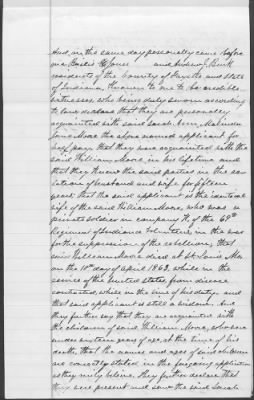 And, on the same day personally came before
me Boidie H Jones and Andrew J. Buck
residents of the County of Fayette and State
of Indiana, Known to me to be credible
witnesses, who being duly sworn according
to law declare that they are personally
acquainted with said Sarah Malinda
Jane Moore the above named applicant for
half pay; that they were acquainted with the
said William Moore in his lifetime and
that they knew the said parties in the re-
lation of husband and wife for fifteen
years; that the said applicant is the identical
wife of the said William Moore, who was a
private soldier in company H, of the 69th
Regiment of Indiana Volunteers in the war
for the suppression of the rebellion, that
said William Moore died at St. Louis, Mo.
on the 10th day of April 1863, while in the
service of the United States from disease
contracted, while in the line of his duty; and
that said applicant is still a widow. And
they further say that they are acquainted with
the children of said William Moore, who were
under sixteen years of age, at the time of his
death, that the names and ages of said children
are correctly stated in the foregoing application
as they verily believe. They further declare that
they were present and saw the said Sarah